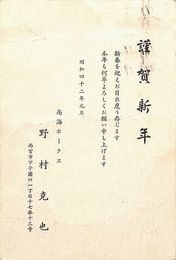 謹賀新年
新春を迎えお目出度う存じます
本年も何卒よろしくお願い申し上げます
昭和四十二年元旦
南海ホークス
野村克也
西宮市甲子園口一丁目十七番十三号